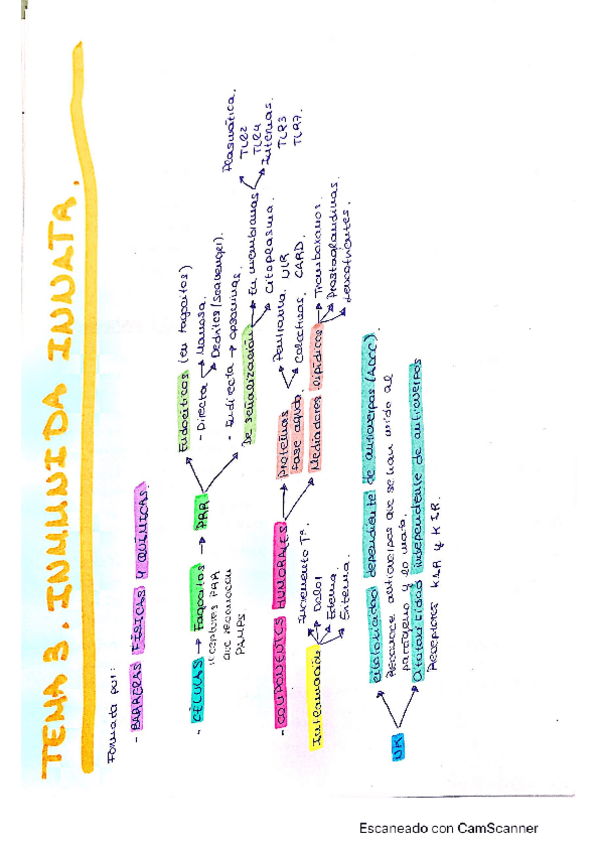 TEMA 3. INMUNIDA INNATA.
Formada por:
- BARRERAS FÍSICAS Y QUÍMICAS.
- CÉLULAS → Fagocitos → PRR
receptores PRR
que reconocen
PAMPS
Endocíticos (en fagocitos)
- Directa
Manosa.
Detritos (Scavenger).
- Indirecta → opsoninas.
De señalización
En membranas
Plasmática.
TLR2
TLR4
Internas.
TLR3
TLR7.
Citoplasma.
NLR
CARD.
- COMPONENTES HUMORALES
Proteínas
fase aguda.
Pentraxina.
Colectinas.
Mediadores lipídicos
Tromboxanos.
Prostaglandinas.
Leucotrientes.
Inflamación
Incremento Tª.
Dolor
Edema.
Eritema.
NK
Citotoxicidad dependiente de anticuerpos (ADCC).
Reconoce anticuerpos que se han unido al
patógeno y lo mata.
Citotoxicidad independiente de anticuerpos
Receptores KAR y KIR.
Escaneado con CamScanner